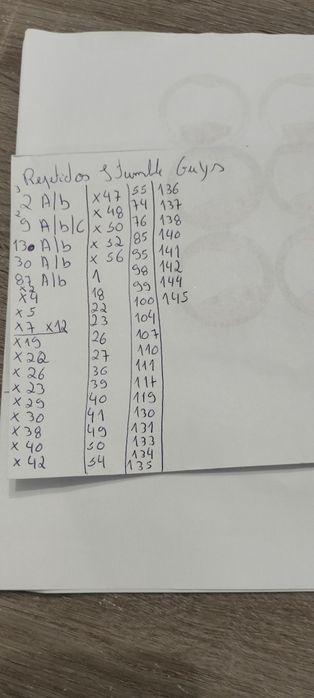 Repetidos Stumble Guys
2 A/b
9 A/b/C
13 A/b
30 A/b
87 A/b
x2
x4
x5
x7 x12
x19
x22
x26
x23
x29
x30
x38
x40
x42
x47
x48
x50
x52
x56
1
18
22
23
26
27
36
39
40
41
49
50
54
55
74
76
85
95
98
99
100
104
107
110
111
117
119
130
131
133
134
135
136
137
138
140
141
142
144
145